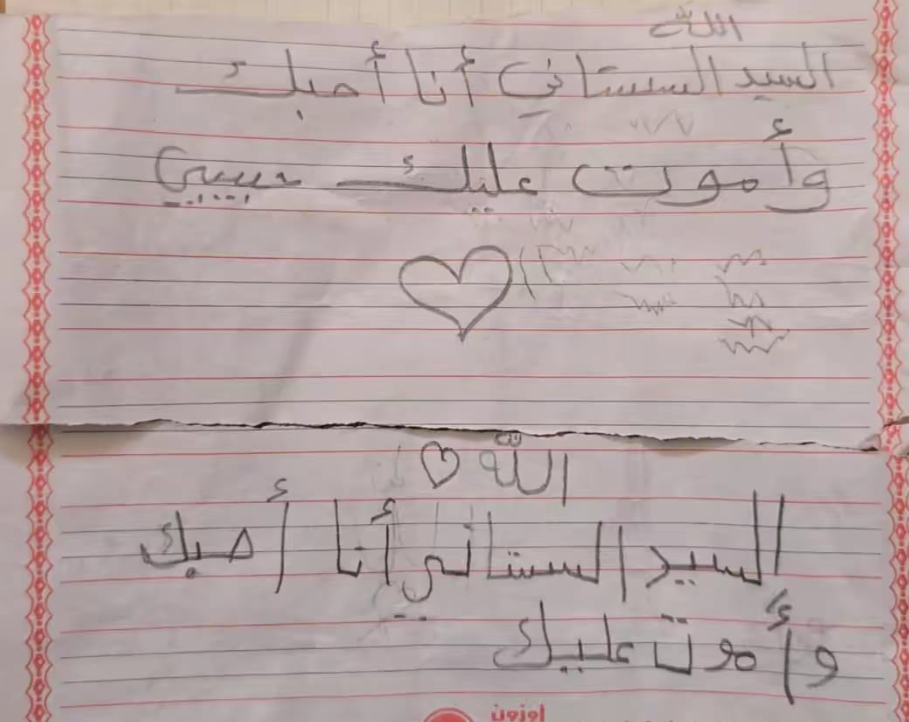 الله
السيد السستاني أنا أحبك
وأموت عليك حبيبي
الله
السيد السستاني أنا أحبك
وأموت عليك
اوزون